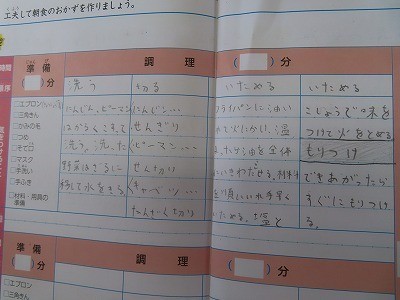 工夫して朝食のおかずを作りましょう。
時間
準備
( )分
調理
( )分
順序
洗う
切る
いためる
いためる
□エプロン
□三角きん
□かみの毛
□つめ
□そで口
□マスク
□手洗い
□手ふき
□材料・用具の
準備
にんじん、ピーマン
はがるくこすって
洗う。洗った
野菜はざるに
移して水をきる。
にんじん…
せんぎり
ピーマン…
せんぎり
キャベツ…
たんざく切り
フライパンに油い
れて火にかけ、温
まったら油を全体
にいきわたせる。材料
を順にいれ手早く
いためる。塩と
こしょうで味を
つけて火をとめる
もりつけ
できあがったら
すぐにもりつけ
る。
準備
( )分
調理
( )分
□エプロン
□三角きん